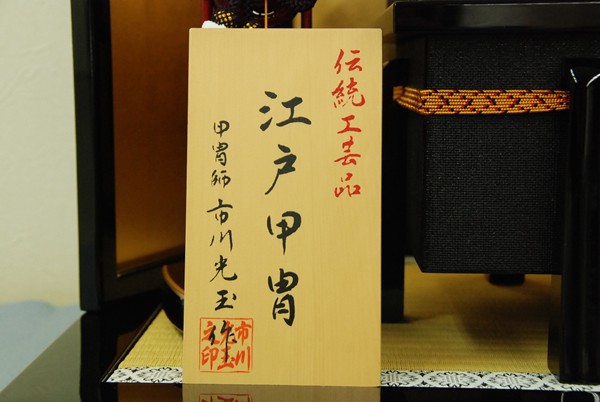 伝統工芸品
江戸甲冑
甲冑師 市川光玉作
市川光玉之印